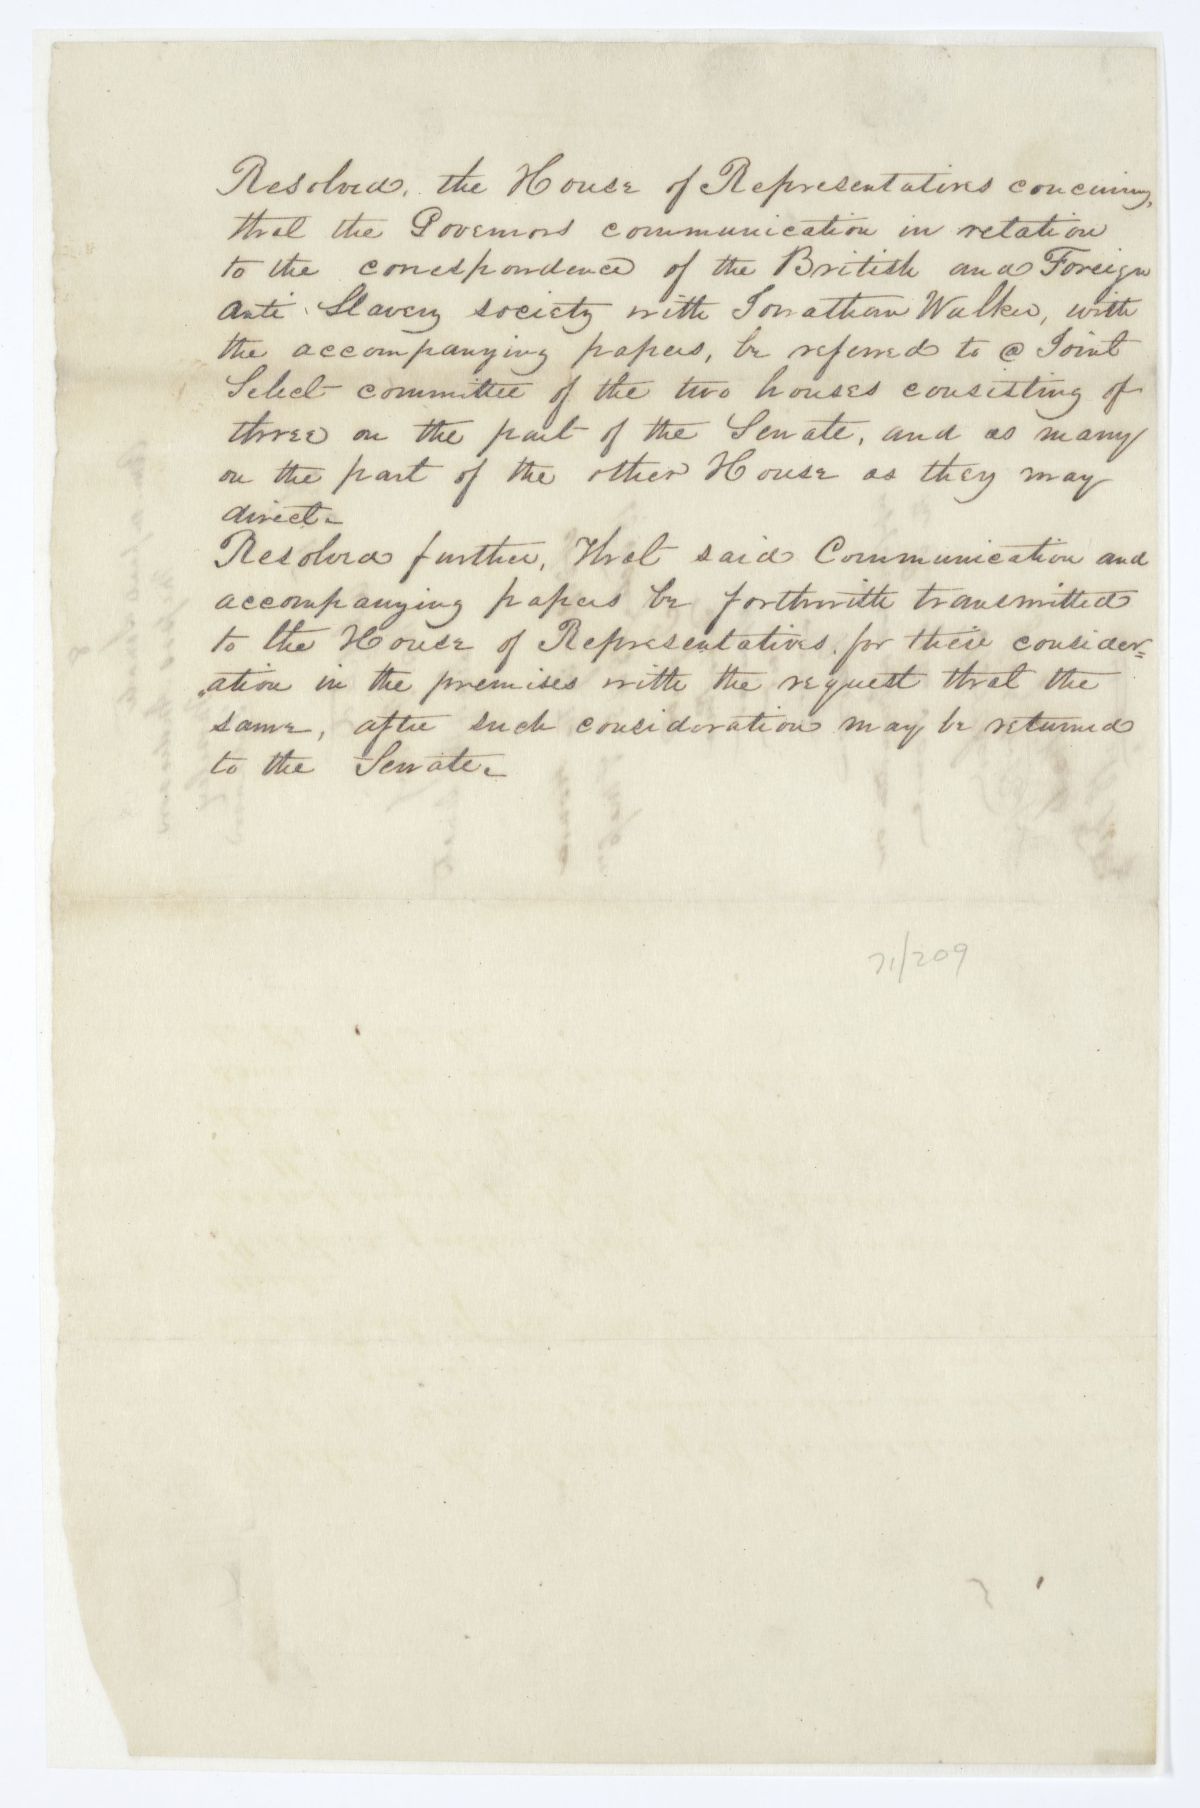 Resolved, the House of Representatives concurring,
that the Governors communication in relation
to the correspondence of the British and Foreign
Anti Slavery society with Jonathan Walker, with
the accompanying papers, be referred to a Joint
Select committee of the two houses consisting of
three on the part of the Senate, and as many
on the part of the other House as they may
direct.
Resolved further, That said Communication and
accompanying papers be forthwith transmitted
to the House of Representatives, for their consider=
ation in the premises with the request that the
same, after such consideration may be returned
to the Senate.
71/209